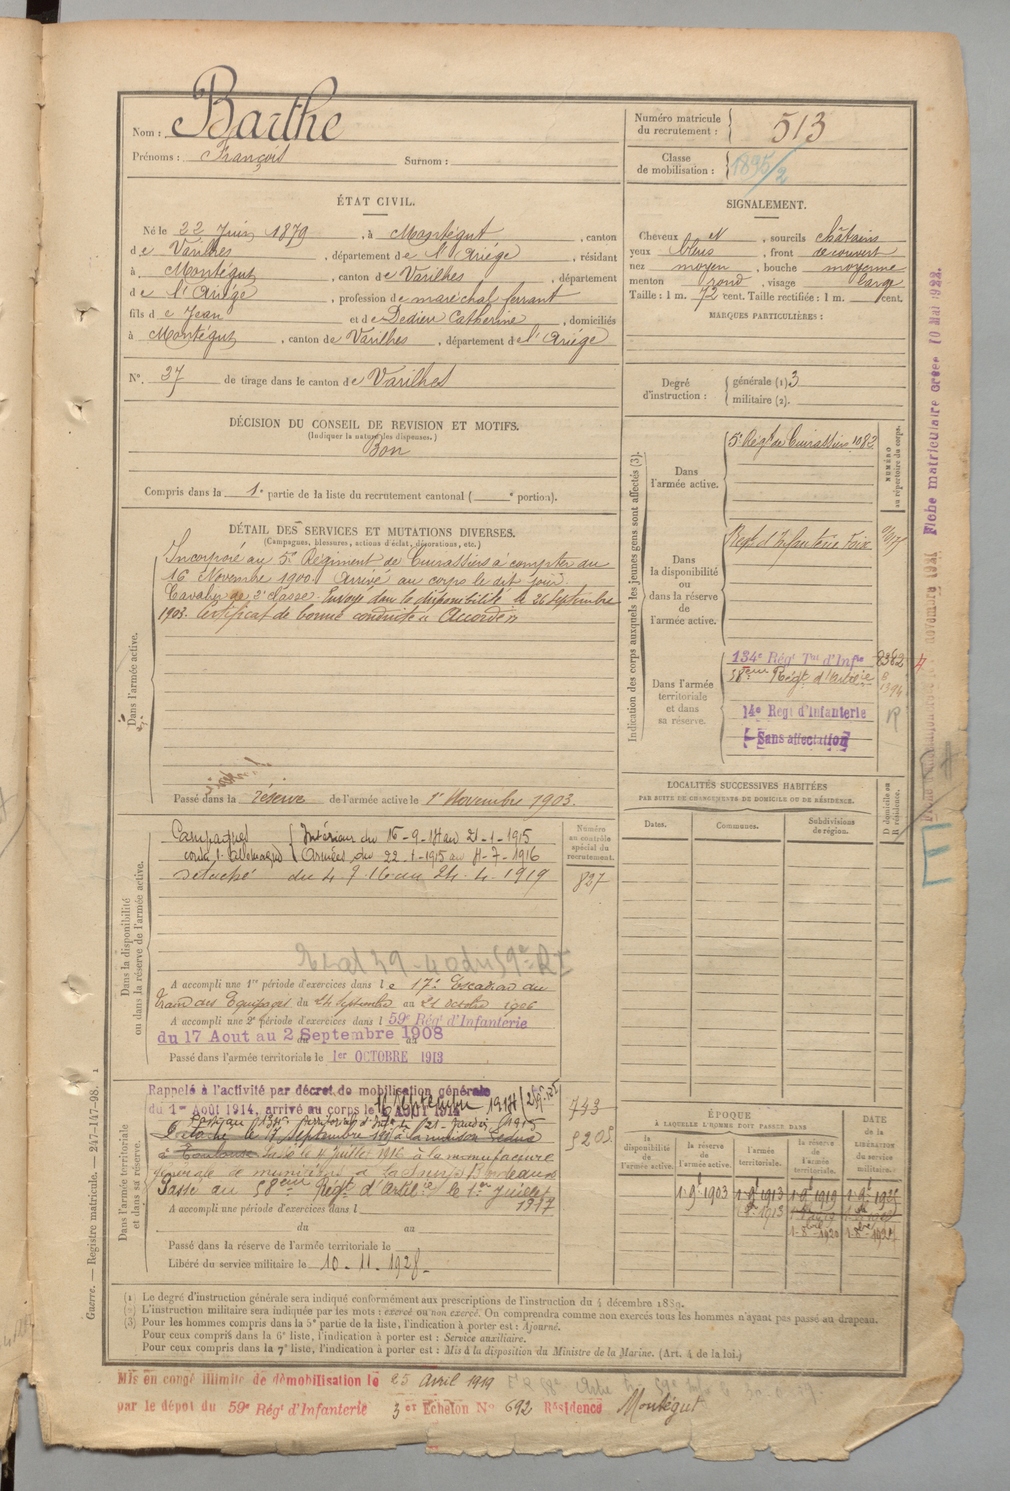 Nom : Barthe
Prénoms : François Surnom :
Numéro matricule du recrutement : 513
Classe de mobilisation : 1895/2
ÉTAT CIVIL.
Né le 22 Juin 1879, à Montégut, canton
de Varilhes, département de l'Ariège, résidant
à Montégut, canton de Varilhes, département
de l'Ariège, profession de maréchal ferrant
fils de Jean et de Dedieu Catherine, domiciliés
à Montégut, canton de Varilhes, département de l'Ariège
No. 37 de tirage dans le canton de Varilhes
SIGNALEMENT.
Cheveux et, sourcils châtains
yeux bleus, front découvert
nez moyen, bouche moyenne
menton rond, visage large
Taille : 1 m. 72 cent. Taille rectifiée : 1 m. cent.
MARQUES PARTICULIÈRES :
Degré d'instruction : générale (1) 3
militaire (2).
DÉCISION DU CONSEIL DE REVISION ET MOTIFS.
(Indiquer la nature des dispenses.)
Bon
Compris dans la 1e partie de la liste du recrutement cantonal ( e portion).
DÉTAIL DES SERVICES ET MUTATIONS DIVERSES.
(Campagnes, blessures, actions d'éclat, décorations, etc.)
Dans l'armée active.
Incorporé au 5e Régiment de Cuirassiers à compter du
16 Novembre 1900. Arrivé au corps le dit jour.
Cavalier de 2e classe. Envoyé dans la disponibilité le 26 Septembre
1903. Certificat de bonne conduite « Accordé »
Passé dans la réserve de l'armée active le 1er Novembre 1903.
Indication des corps auxquels les jeunes gens sont affectés (3).
NUMÉRO au répertoire du corps.
Dans l'armée active.
5e Régt de Cuirassiers 1082
Dans la disponibilité ou dans la réserve de l'armée active.
Régt d'Infanterie Foix
Dans l'armée territoriale et dans sa réserve.
134e Régt Tal d'Infie 8382
58eme Régt d'Artie
14e Regt d'Infanterie
Sans affectation
LOCALITÉS SUCCESSIVES HABITÉES
PAR SUITE DE CHANGEMENTS DE DOMICILE OU DE RÉSIDENCE.
Dates. Communes. Subdivisions de région. D domicile ou R résidence.
Dans la disponibilité ou dans la réserve de l'armée active.
Numéro au contrôle spécial du recrutement.
837
Campagnes Intérieur du 16-9-14 au 21-1-1915
contre l'Allemagne Armées du 22-1-1915 au 4-7-1916
Détaché du 4.7.16 au 24.4.1919
A accompli une 1re période d'exercices dans le 17e Escadron du
Train des Equipages du 24 Septembre au 21 octobre 1906
A accompli une 2e période d'exercices dans l 59e Rég d'Infanterie
du 17 Aout au 2 Septembre 1908
Passé dans l'armée territoriale le 1er OCTOBRE 1913
Dans l'armée territoriale et dans sa réserve.
Rappelé à l'activité par décret de mobilisation générale
du 1er Août 1914, arrivé au corps le 16 Septembre 1914
743
Passé au 134e territorial d'Infie le 21 Janvier 1915
Détaché le 17 Septembre 1915 à la maison
à Toulouse Passé le 4 juillet 1916 à la manufacture
générale de munitions de Bordeaux
Passé au 58eme Régt d'Artie le 1er Juillet
1917
A accompli une période d'exercices dans l
du au
Passé dans la réserve de l'armée territoriale le
Libéré du service militaire le 10-11-1928
ÉPOQUE
À LAQUELLE L'HOMME DOIT PASSER DANS
DATE de la LIBÉRATION DU service militaire.
la disponibilité de l'armée active. la réserve de l'armée active. l'armée territoriale. la réserve de l'armée territoriale.
1 9bre 1903 1 9bre 1913 1 9bre 1919
(1) Le degré d'instruction générale sera indiqué conformément aux prescriptions de l'instruction du 4 décembre 1889.
(2) L'instruction militaire sera indiquée par les mots : exercé ou non exercé. On comprendra comme non exercés tous les hommes n'ayant pas passé au drapeau.
(3) Pour les hommes compris dans la 5e partie de la liste, l'indication à porter est : Ajourné.
Pour ceux compris dans la 6e liste, l'indication à porter est : Service auxiliaire.
Pour ceux compris dans la 7e liste, l'indication à porter est : Mis à la disposition du Ministre de la Marine. (Art. 4 de la loi.)
Mis en congé illimité de démobilisation le 25 Avril 1919
par le dépot du 59e Rég d'Infanterie 3 er Echelon No 692 Résidence Montégut
Guerre. — Registre matricule. — 247-147-98.
Fiche matriculaire créée 10 Mai 1922.